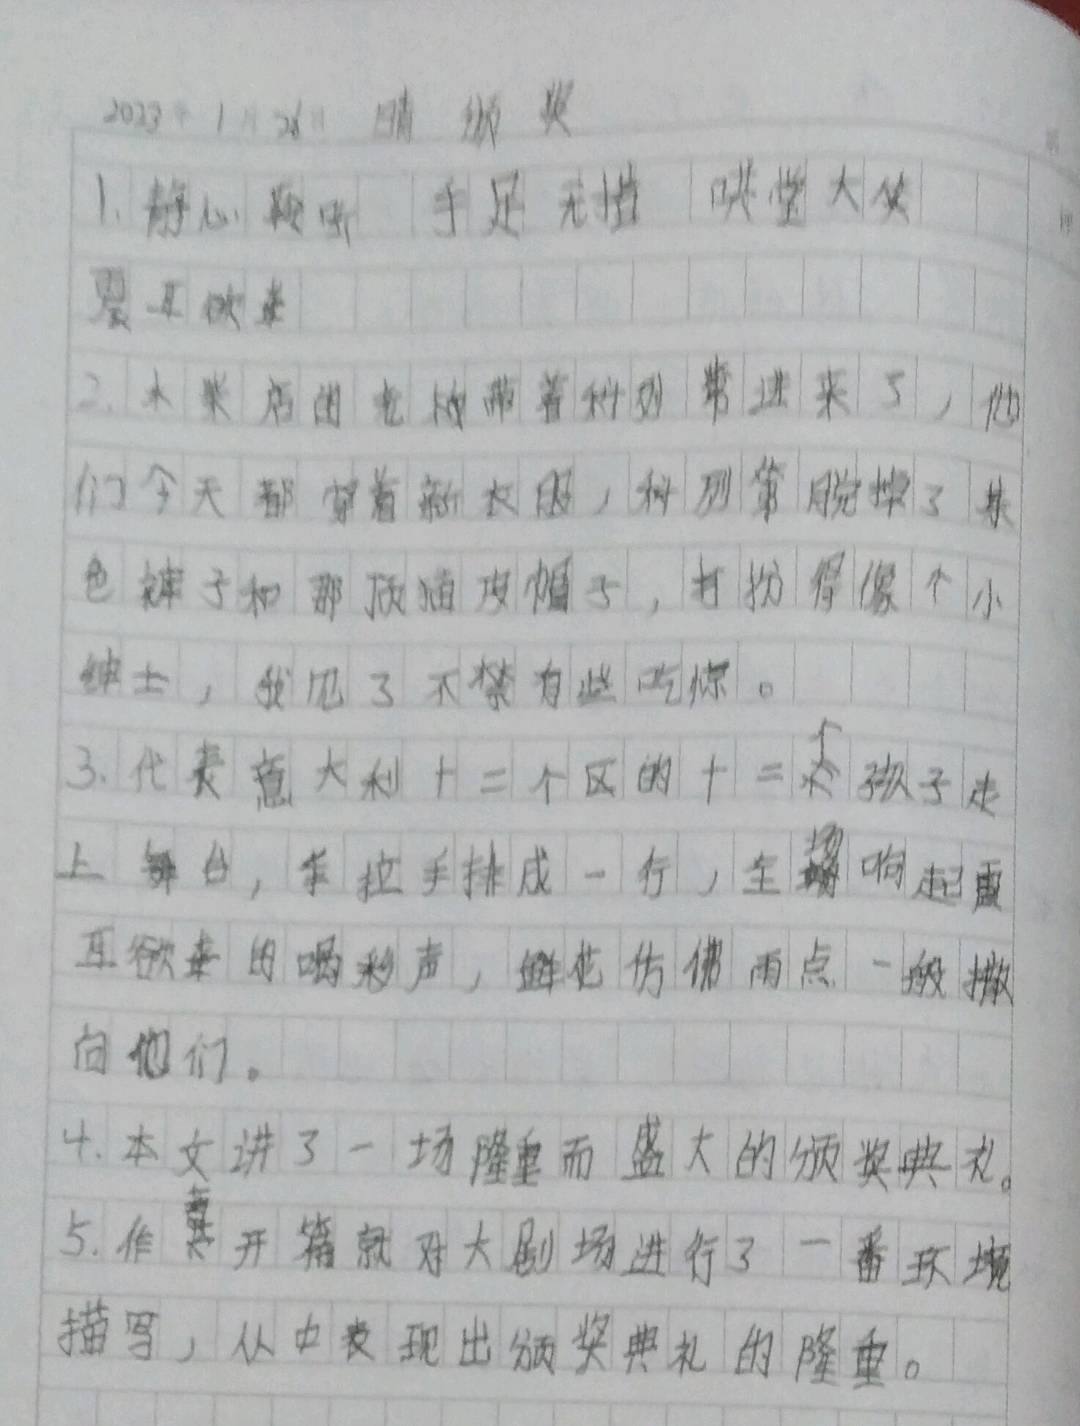 2023年1月26日 晴 颁奖
1. 静心聆听 手足无措 哄堂大笑
震耳欲聋
2. 木柴店的老板带着科列第进来了，他
们今天都穿着新衣服，科列第脱掉了
色裤子和那顶猫皮帽子，打扮得像个小
绅士，我见了不禁有些吃惊。
3. 代表意大利十二个区的十二个孩子走
上舞台，手拉手排成一行，全场响起震
耳欲聋的喝彩声，鲜花仿佛雨点一般撒
向他们。
4. 本文讲了一场隆重而盛大的颁奖典礼。
5. 作者开篇就对大剧场进行了一番环境
描写，从中表现出颁奖典礼的隆重。